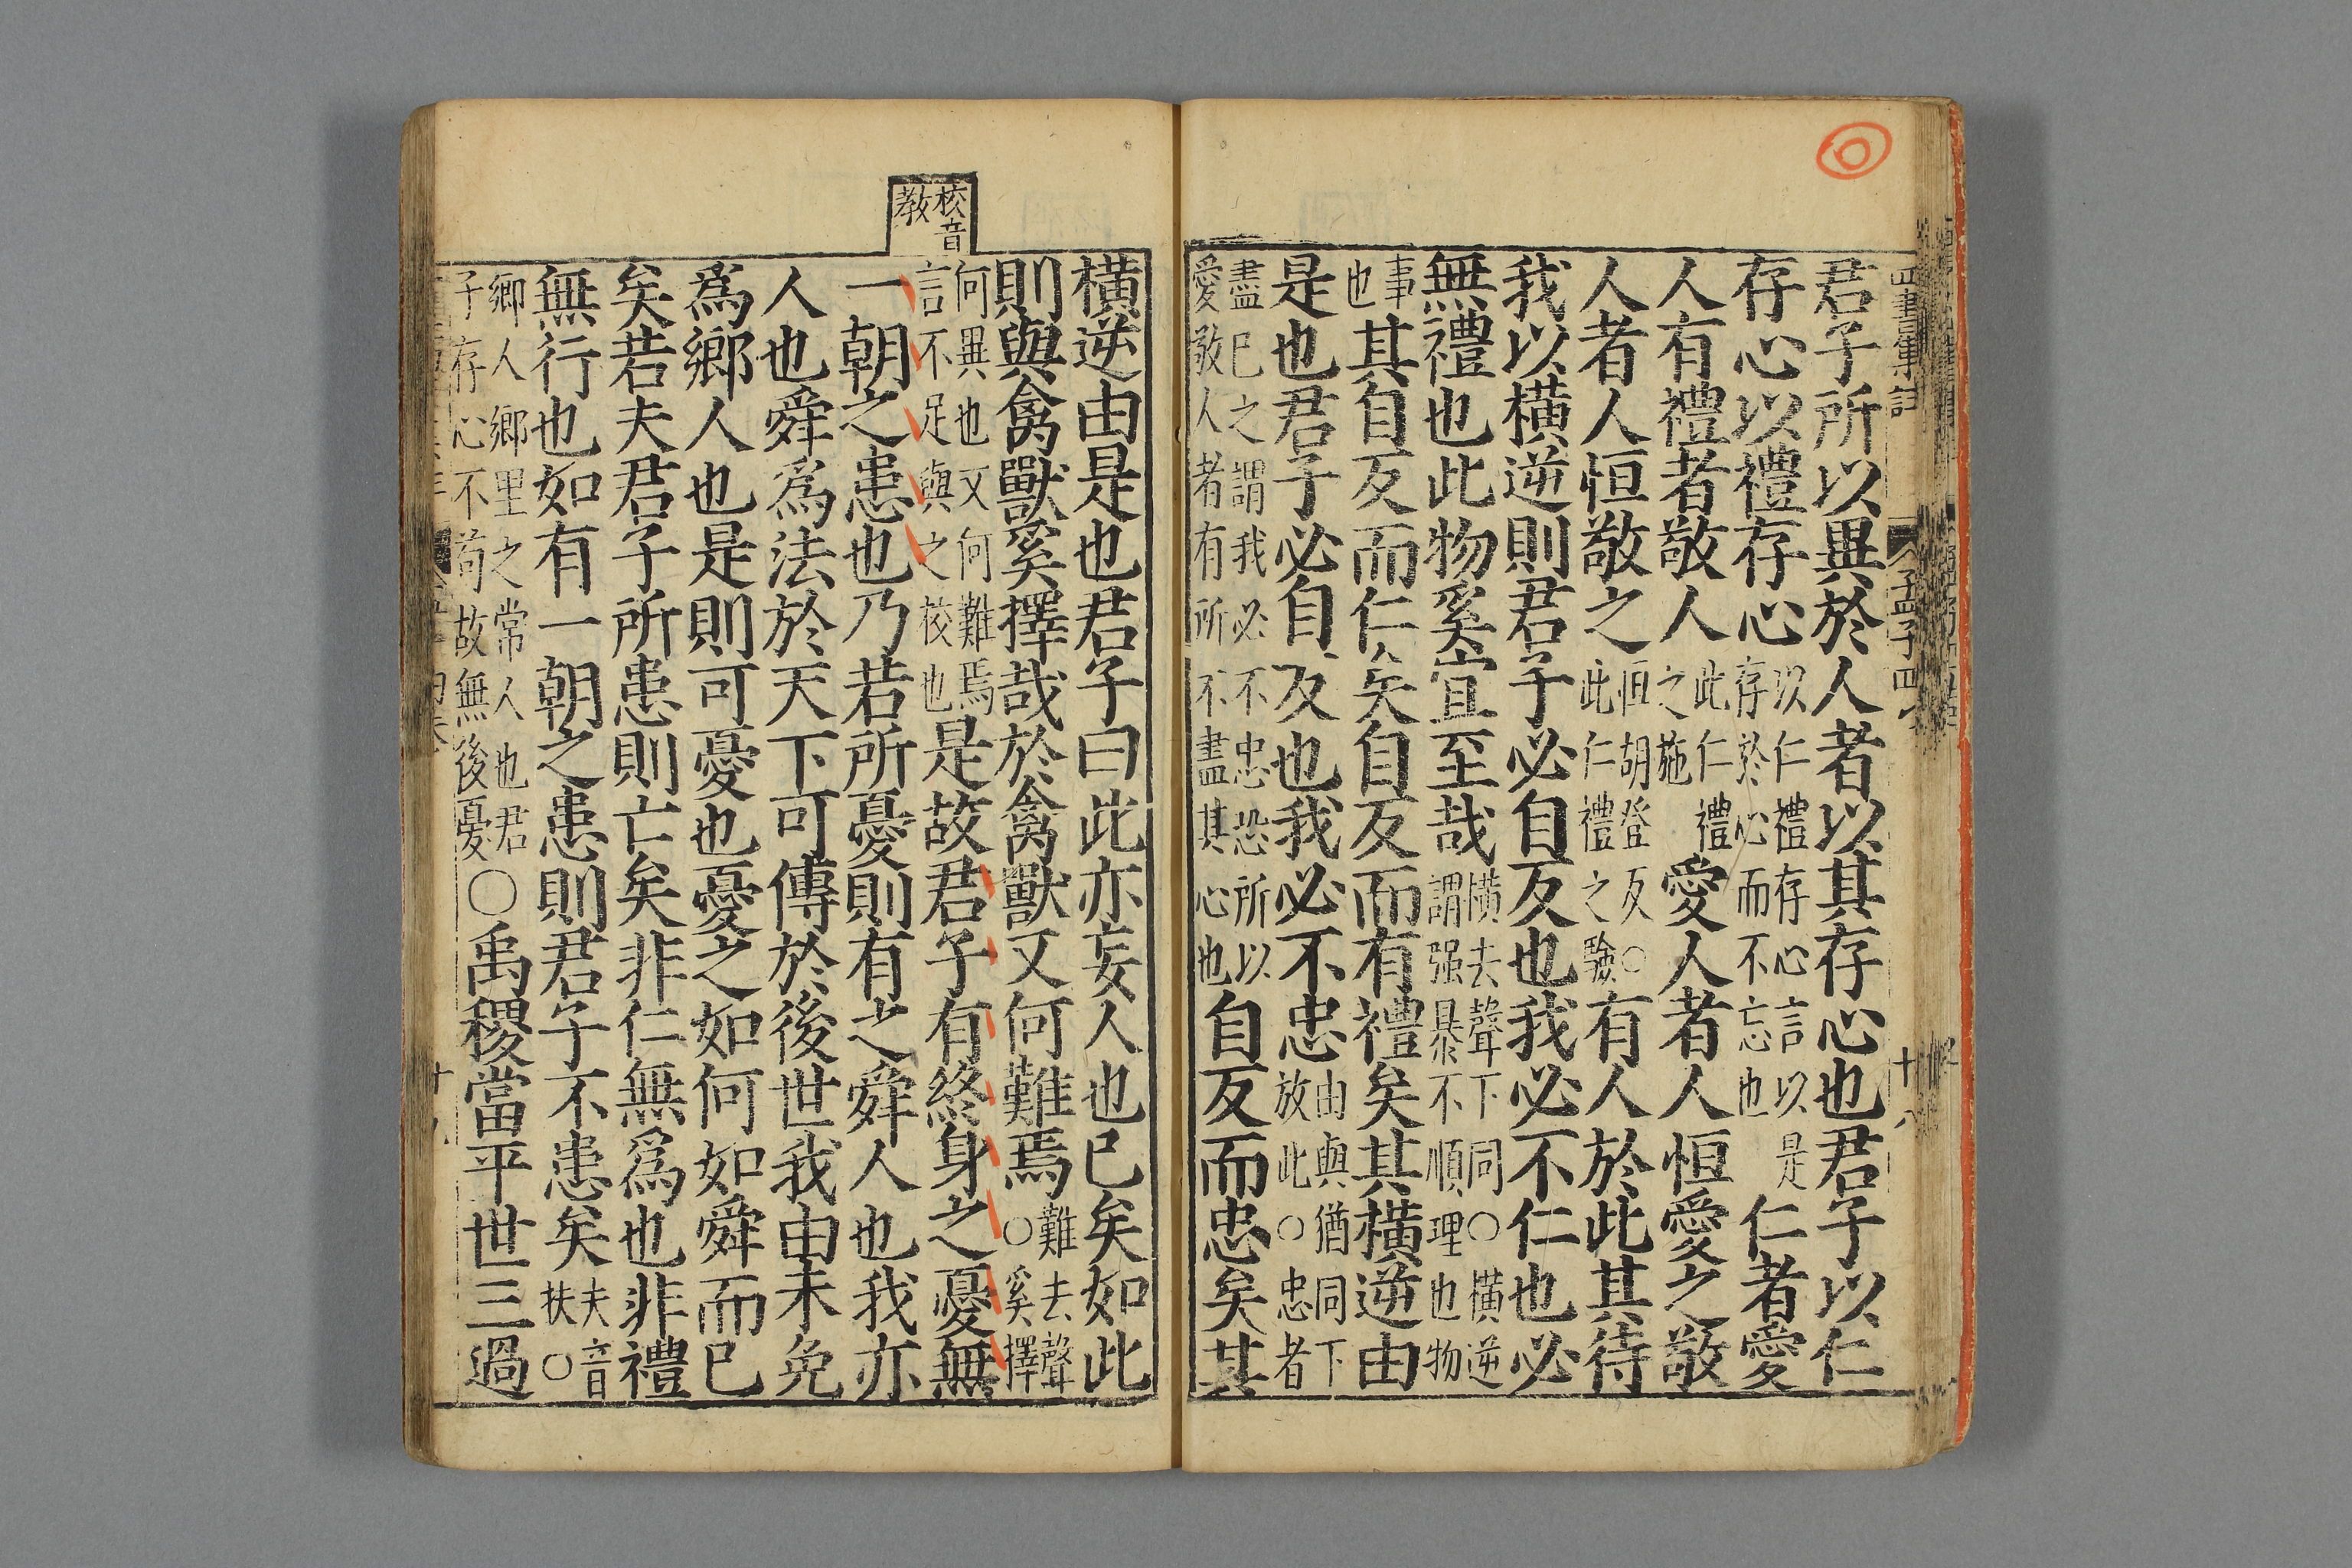 君子所以異於人者以其存心也君子以仁
存心以禮存心以仁禮存心言以是存於心而不忘也仁者愛
人有禮者敬人此仁禮之施愛人者人恒愛之敬
人者人恒敬之恒胡登反○此仁禮之驗有人於此其待
我以橫逆則君子必自反也我必不仁也必
無禮也此物奚宜至哉橫去聲下同○橫逆謂强暴不順理也物
事也其自反而仁矣自反而有禮矣其橫逆由
是也君子必自反也我必不忠由與猶同下放此○忠者
盡已之謂我必不忠恐所以愛敬人者有所不盡其心也自反而忠矣其
橫逆由是也君子曰此亦妄人也已矣如此
則與禽獸奚擇哉於禽獸又何難焉難去聲○奚擇
何異也又何難焉言不足與之校也是故君子有終身之憂無
校音教
一朝之患也乃若所憂則有之舜人也我亦
人也舜爲法於天下可傳於後世我由未免
爲鄉人也是則可憂也憂之如何如舜而已
矣若夫君子所患則亡矣非仁無爲也非禮
無行也如有一朝之患則君子不患矣夫音扶○
鄉人鄉里之常人也君子存心不苟故無後憂○禹稷當平世三過